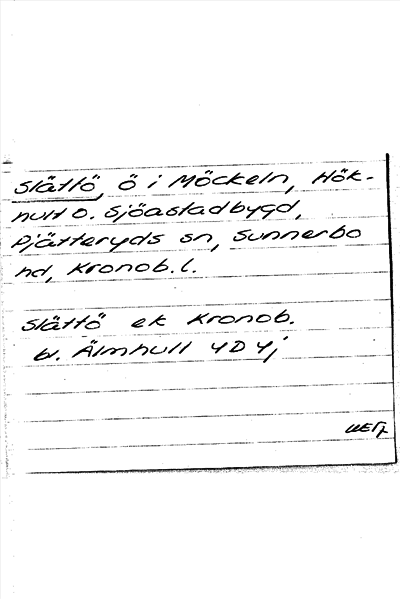 Slättö, ö i Möckeln, Hök-
hult o. Sjöastadbygd,
Pjätteryds sn, Sunnerbo
hd, Kronob. l.
Slättö ek Kronob.
bl. Älmhult 4D4j